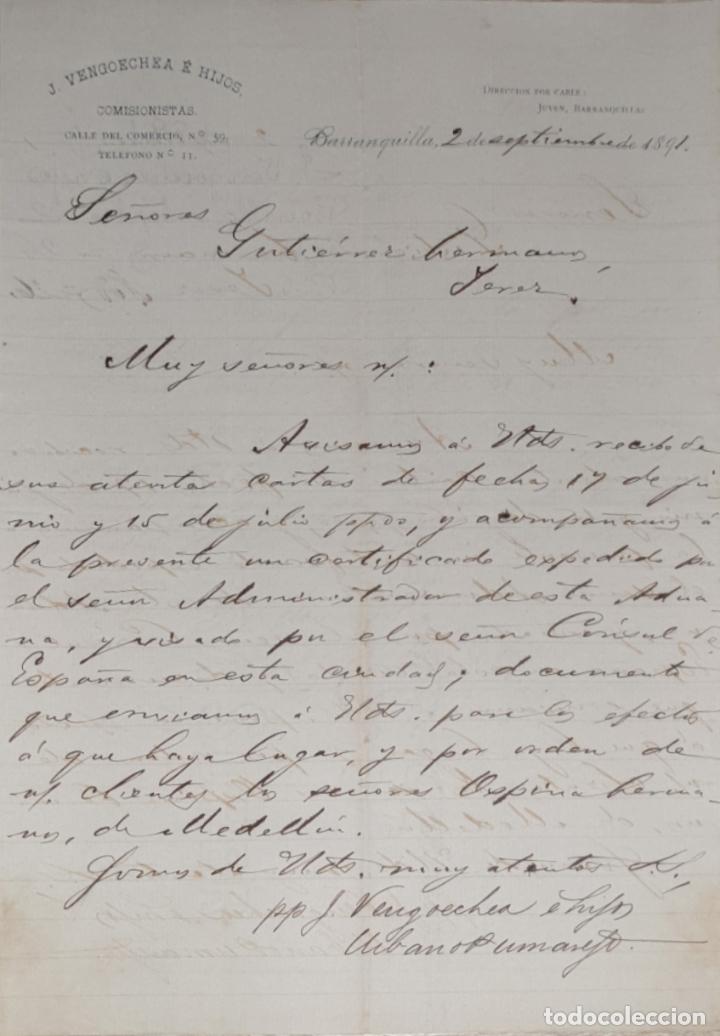 J. VENGOECHEA É HIJOS,
COMISIONISTAS.
CALLE DEL COMERCIO, Nº 59.
TELEFONO Nº 11.
DIRECCION POR CABLE:
JUVEN, BARRANQUILLA
Barranquilla, 2 de septiembre de 1891.
Señores
Gutiérrez hermanos
Jerez.
Muy señores n/. :
Avisamos á Uds. recibo de
sus atentas cartas de fechas 17 de ju
nio y 15 de julio ppdo, y acompañamos á
la presente un certificado expedido por
el señor Administrador de esta Adua
na, y visado por el señor Cónsul de
España en esta ciudad, documento
que enviamos á Uds. para los efectos
á que haya lugar, y por orden de
n/. clientes los señores Ospina herma
nos, de Medellín.
Somos de Uds. muy atentos S. S.,
pp J. Vengoechea e hijos
Urbano Pumarejo.
todocoleccion